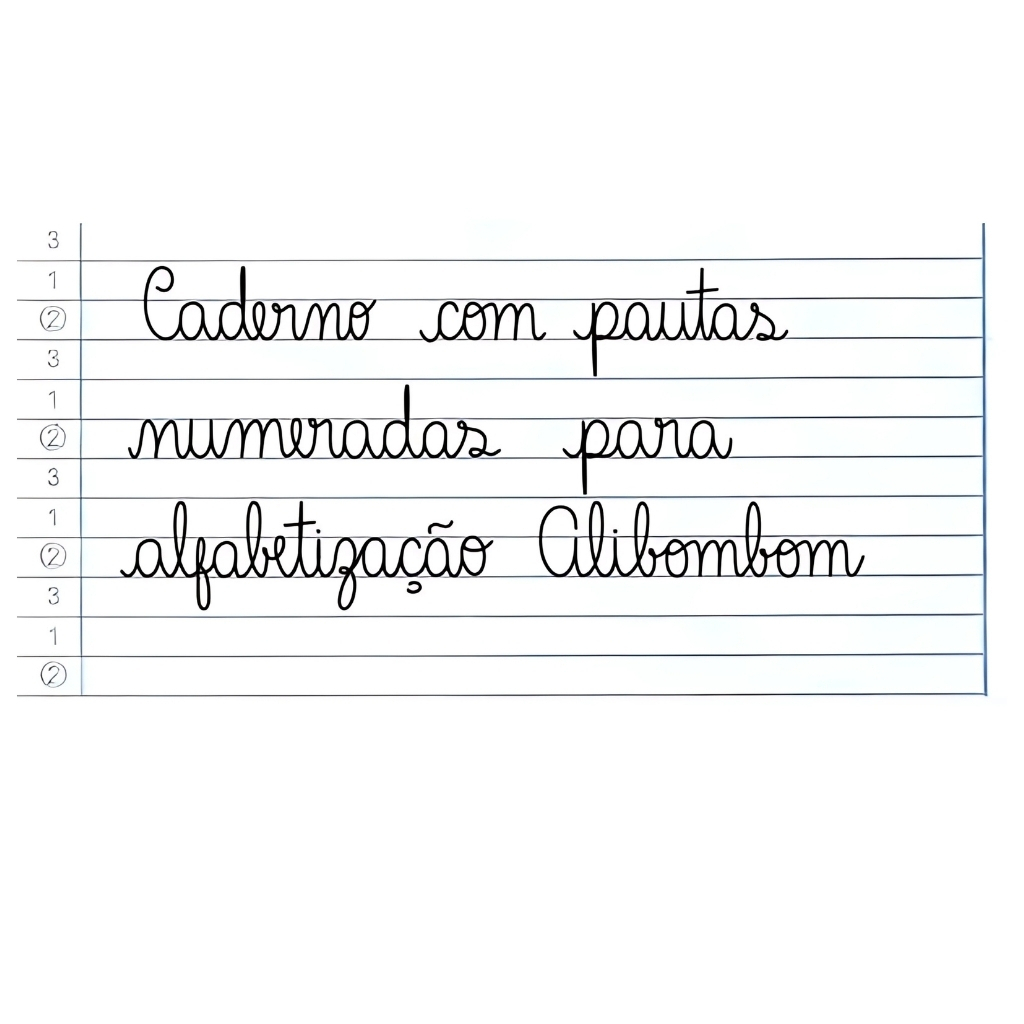 3
1
② Caderno com pautas
3
1
② numeradas para
3
1
② alfabetização Alibombom
3
1
②